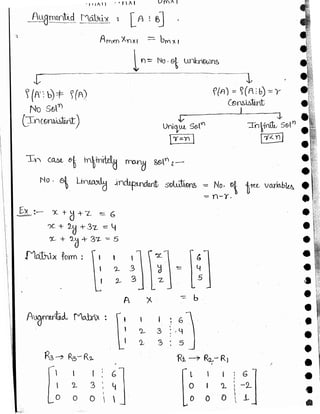 Augmented Matrix : [A : B]
Amxn Xnx1 = bmx1
n = No. of unknowns
ρ(A:b) ≠ ρ(A)
No Solⁿ
(Inconsistent)
ρ(A) = ρ(A:b) = r
Consistent
Unique Solⁿ
r=n
Infinite Solⁿ
r<n
In case of infinitely many solⁿ :-
No. of Linearly independent solutions = No. of free variables
= n-r.
Ex :- x + y + z = 6
x + 2y + 3z = 4
x + 2y + 3z = 5
Matrix form : [1 1 1] [x] [6]
[1 2 3] [y] = [4]
[1 2 3] [z] [5]
A X = b
Augmented Matrix : [1 1 1 : 6]
[1 2 3 : 4]
[1 2 3 : 5]
R3 → R3-R2
[1 1 1 : 6]
[1 2 3 : 4]
[0 0 0 : 1]
R2 → R2-R1
[1 1 1 : 6]
[0 1 2 : -2]
[0 0 0 : 1]